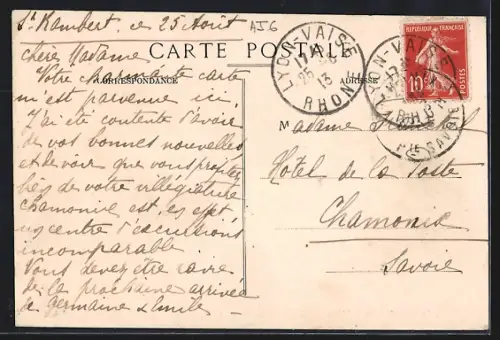 St Rambert, ce 25 Août
AJ6
CARTE POSTALE
CORRESPONDANCE
ADRESSE
LYON-VAISE
25 - 8
13
RHONE
LYON-VAISE
RÉPUBLIQUE FRANÇAISE
10
POSTES
Hte SAVOIE
chère Madame,
Votre charmante carte
m'est parvenue ici,
J'ai été contente d'avoir
de vos bonnes nouvelles
et de voir que vous profitez
bien de votre villégiature
Chamonix est, en effet,
un centre d'excursions
incomparable
Vous devez être ravie
de la prochaine arrivée
de Germaine & Emile
Madame
Hôtel de la Poste
Chamonix
Savoie